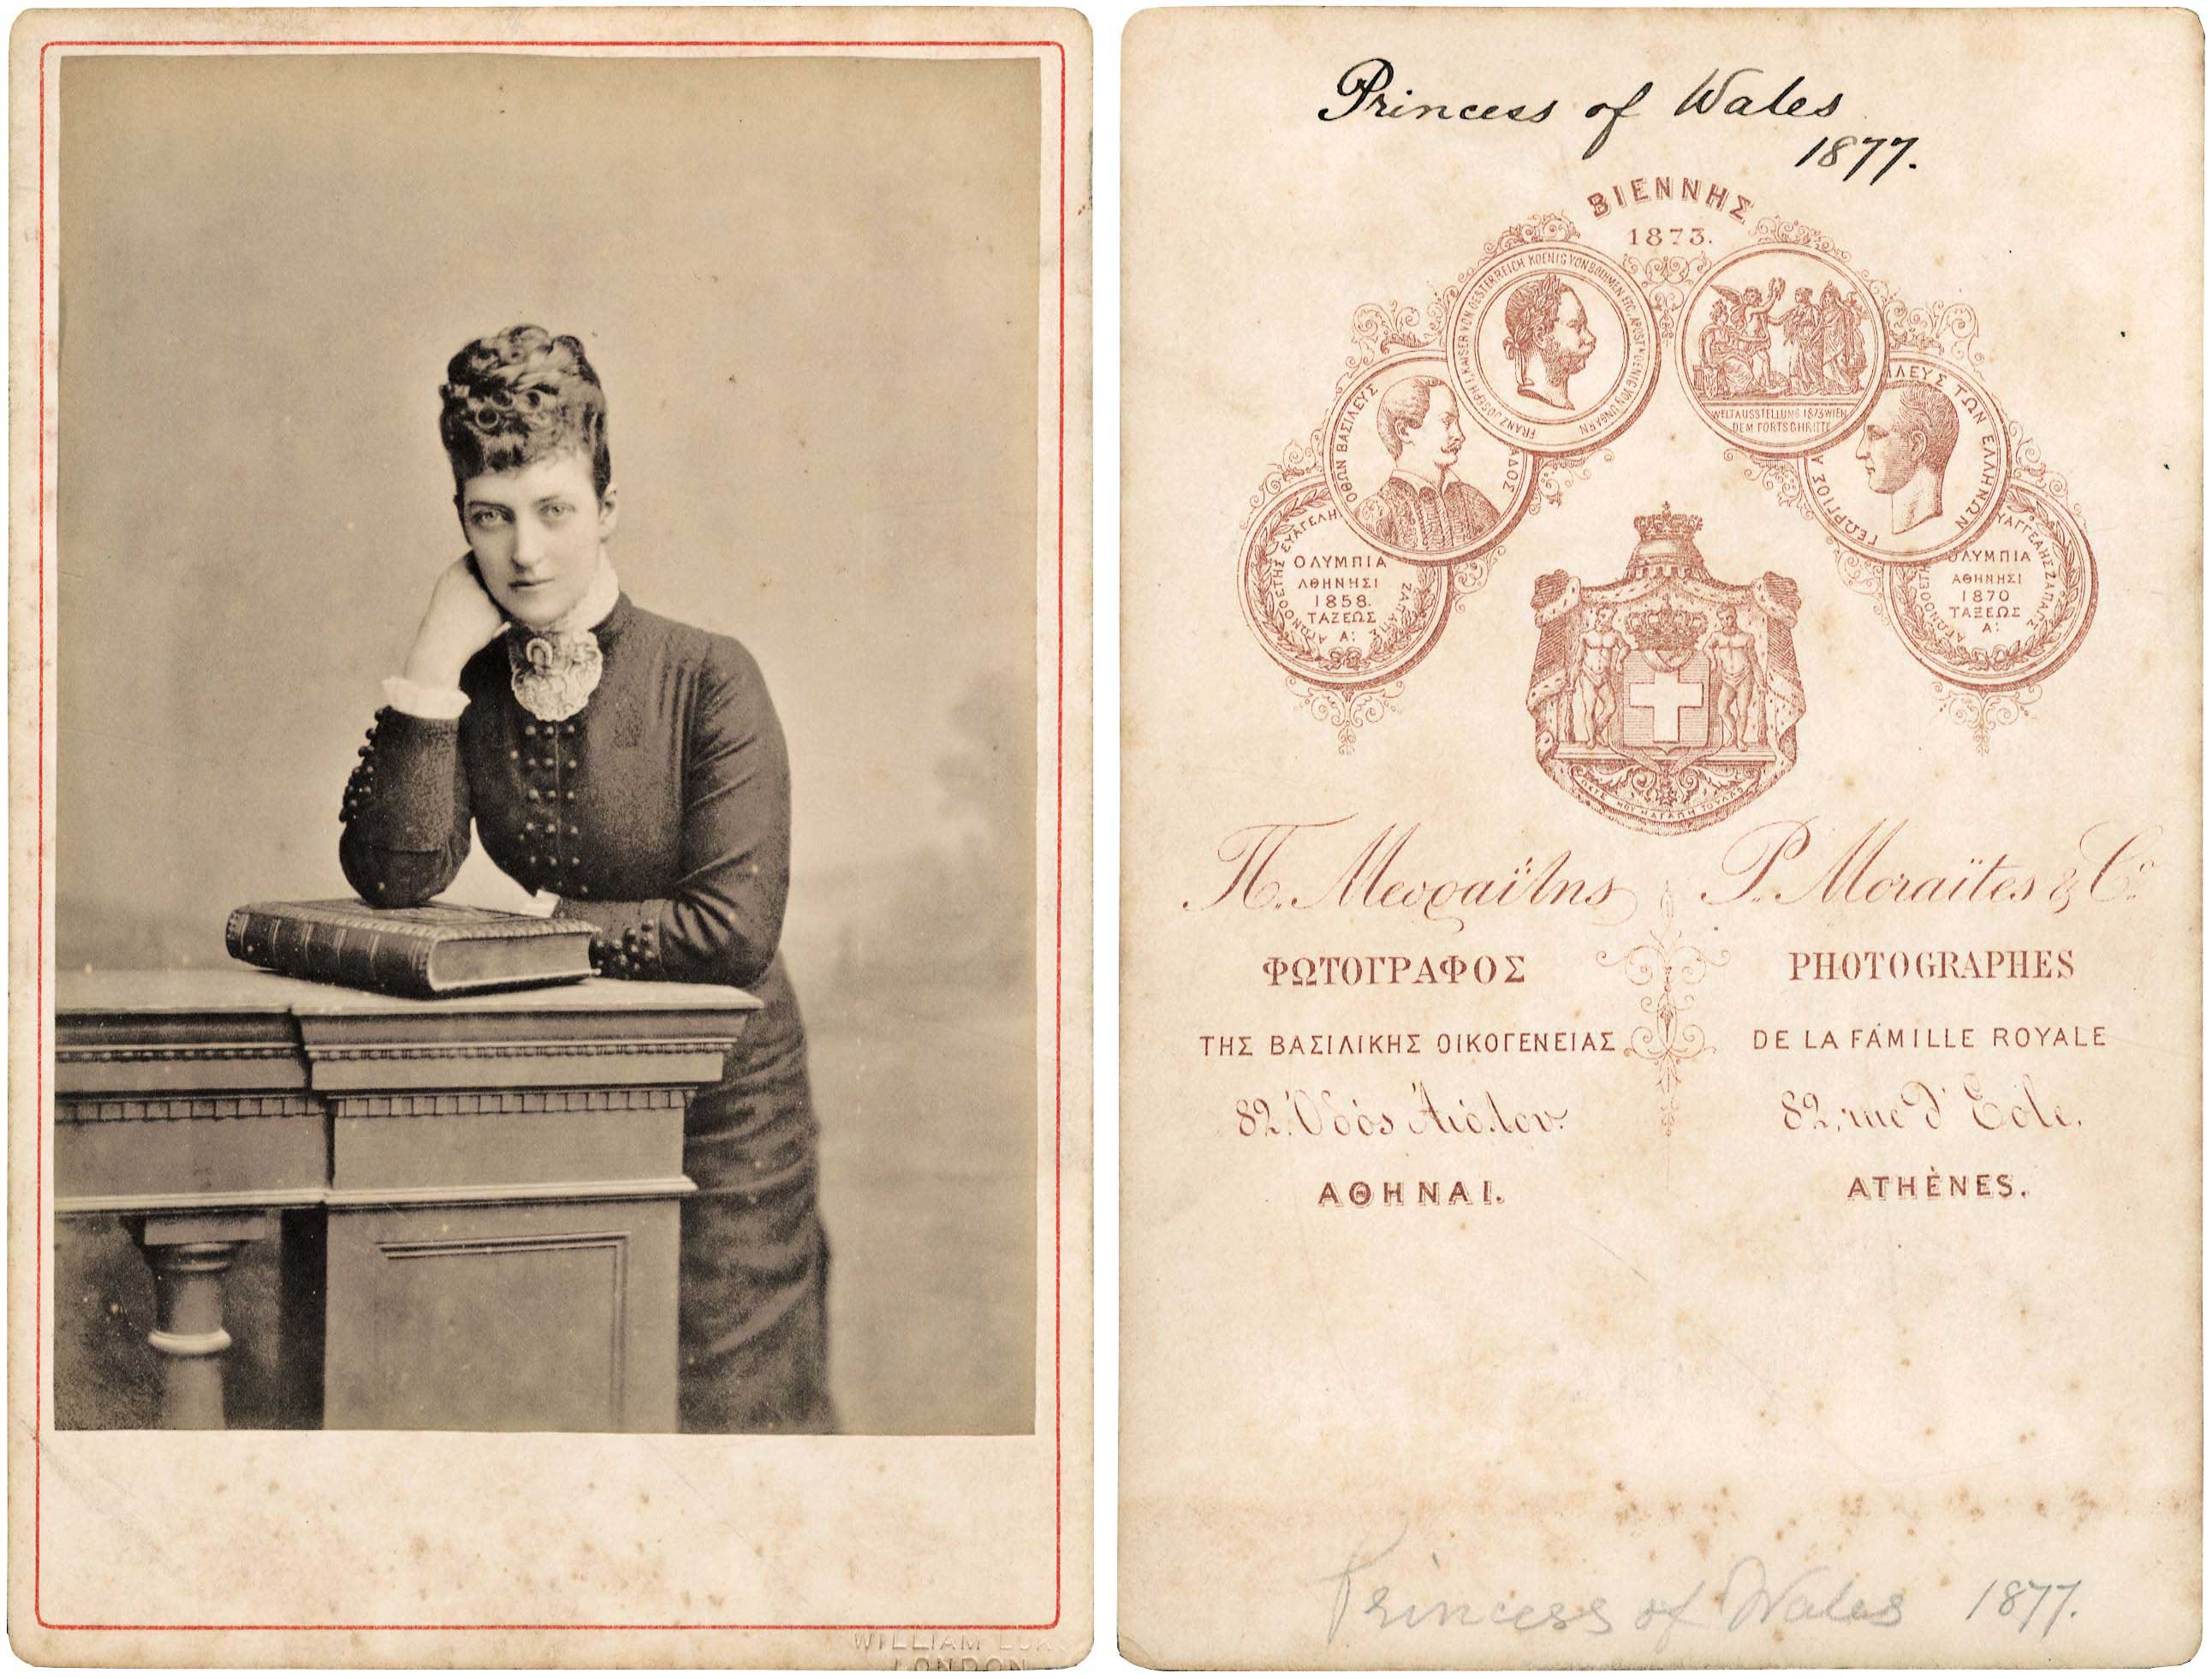 WILLIAM
LONDON
Princess of Wales
1877.
ΒΙΕΝΝΗΣ
1873.
FRANZ JOSEPH I. KAISER VON OESTERREICH KOENIG VON BOEHMEN ETC. APOST. KOENIG VON UNGARN
WELTAUSSTELLUNG 1873 WIEN
DEM FORTSCHRITTE
ΟΘΩΝ ΒΑΣΙΛΕΥΣ
ΑΔΟΣ
ΓΕΩΡΓΙΟΣ Α ΙΛΕΥΣ ΤΩΝ ΕΛΛΗΝΩΝ
ΑΓΩΝΟΘΕΤΗΣ ΕΥΑΓΓΕΛΗ ΖΑΠΠΑΣ
ΟΛΥΜΠΙΑ
ΑΘΗΝΗΣΙ
1858.
ΤΑΞΕΩΣ
Α:
ΑΓΩΝΟΘΕΤΗ ΥΑΓΓΕΛΗΣ ΖΑΠΠΑΣ
ΟΛΥΜΠΙΑ
ΑΘΗΝΗΣΙ
1870
ΤΑΞΕΩΣ
Α:
Π. Μωραΐτης
ΦΩΤΟΓΡΑΦΟΣ
ΤΗΣ ΒΑΣΙΛΙΚΗΣ ΟΙΚΟΓΕΝΕΙΑΣ
82. Ὁδός Αἰόλου.
ΑΘΗΝΑΙ.
P. Moraïtes & Cº
PHOTOGRAPHES
DE LA FAMILLE ROYALE
82, rue d'Eole.
ATHÈNES.
Princess of Wales 1877.